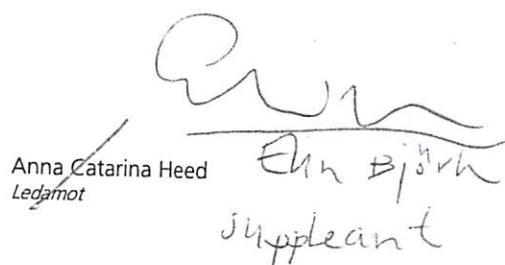 Anna Catarina Heed
Ledamot
Elin Björk
suppleant